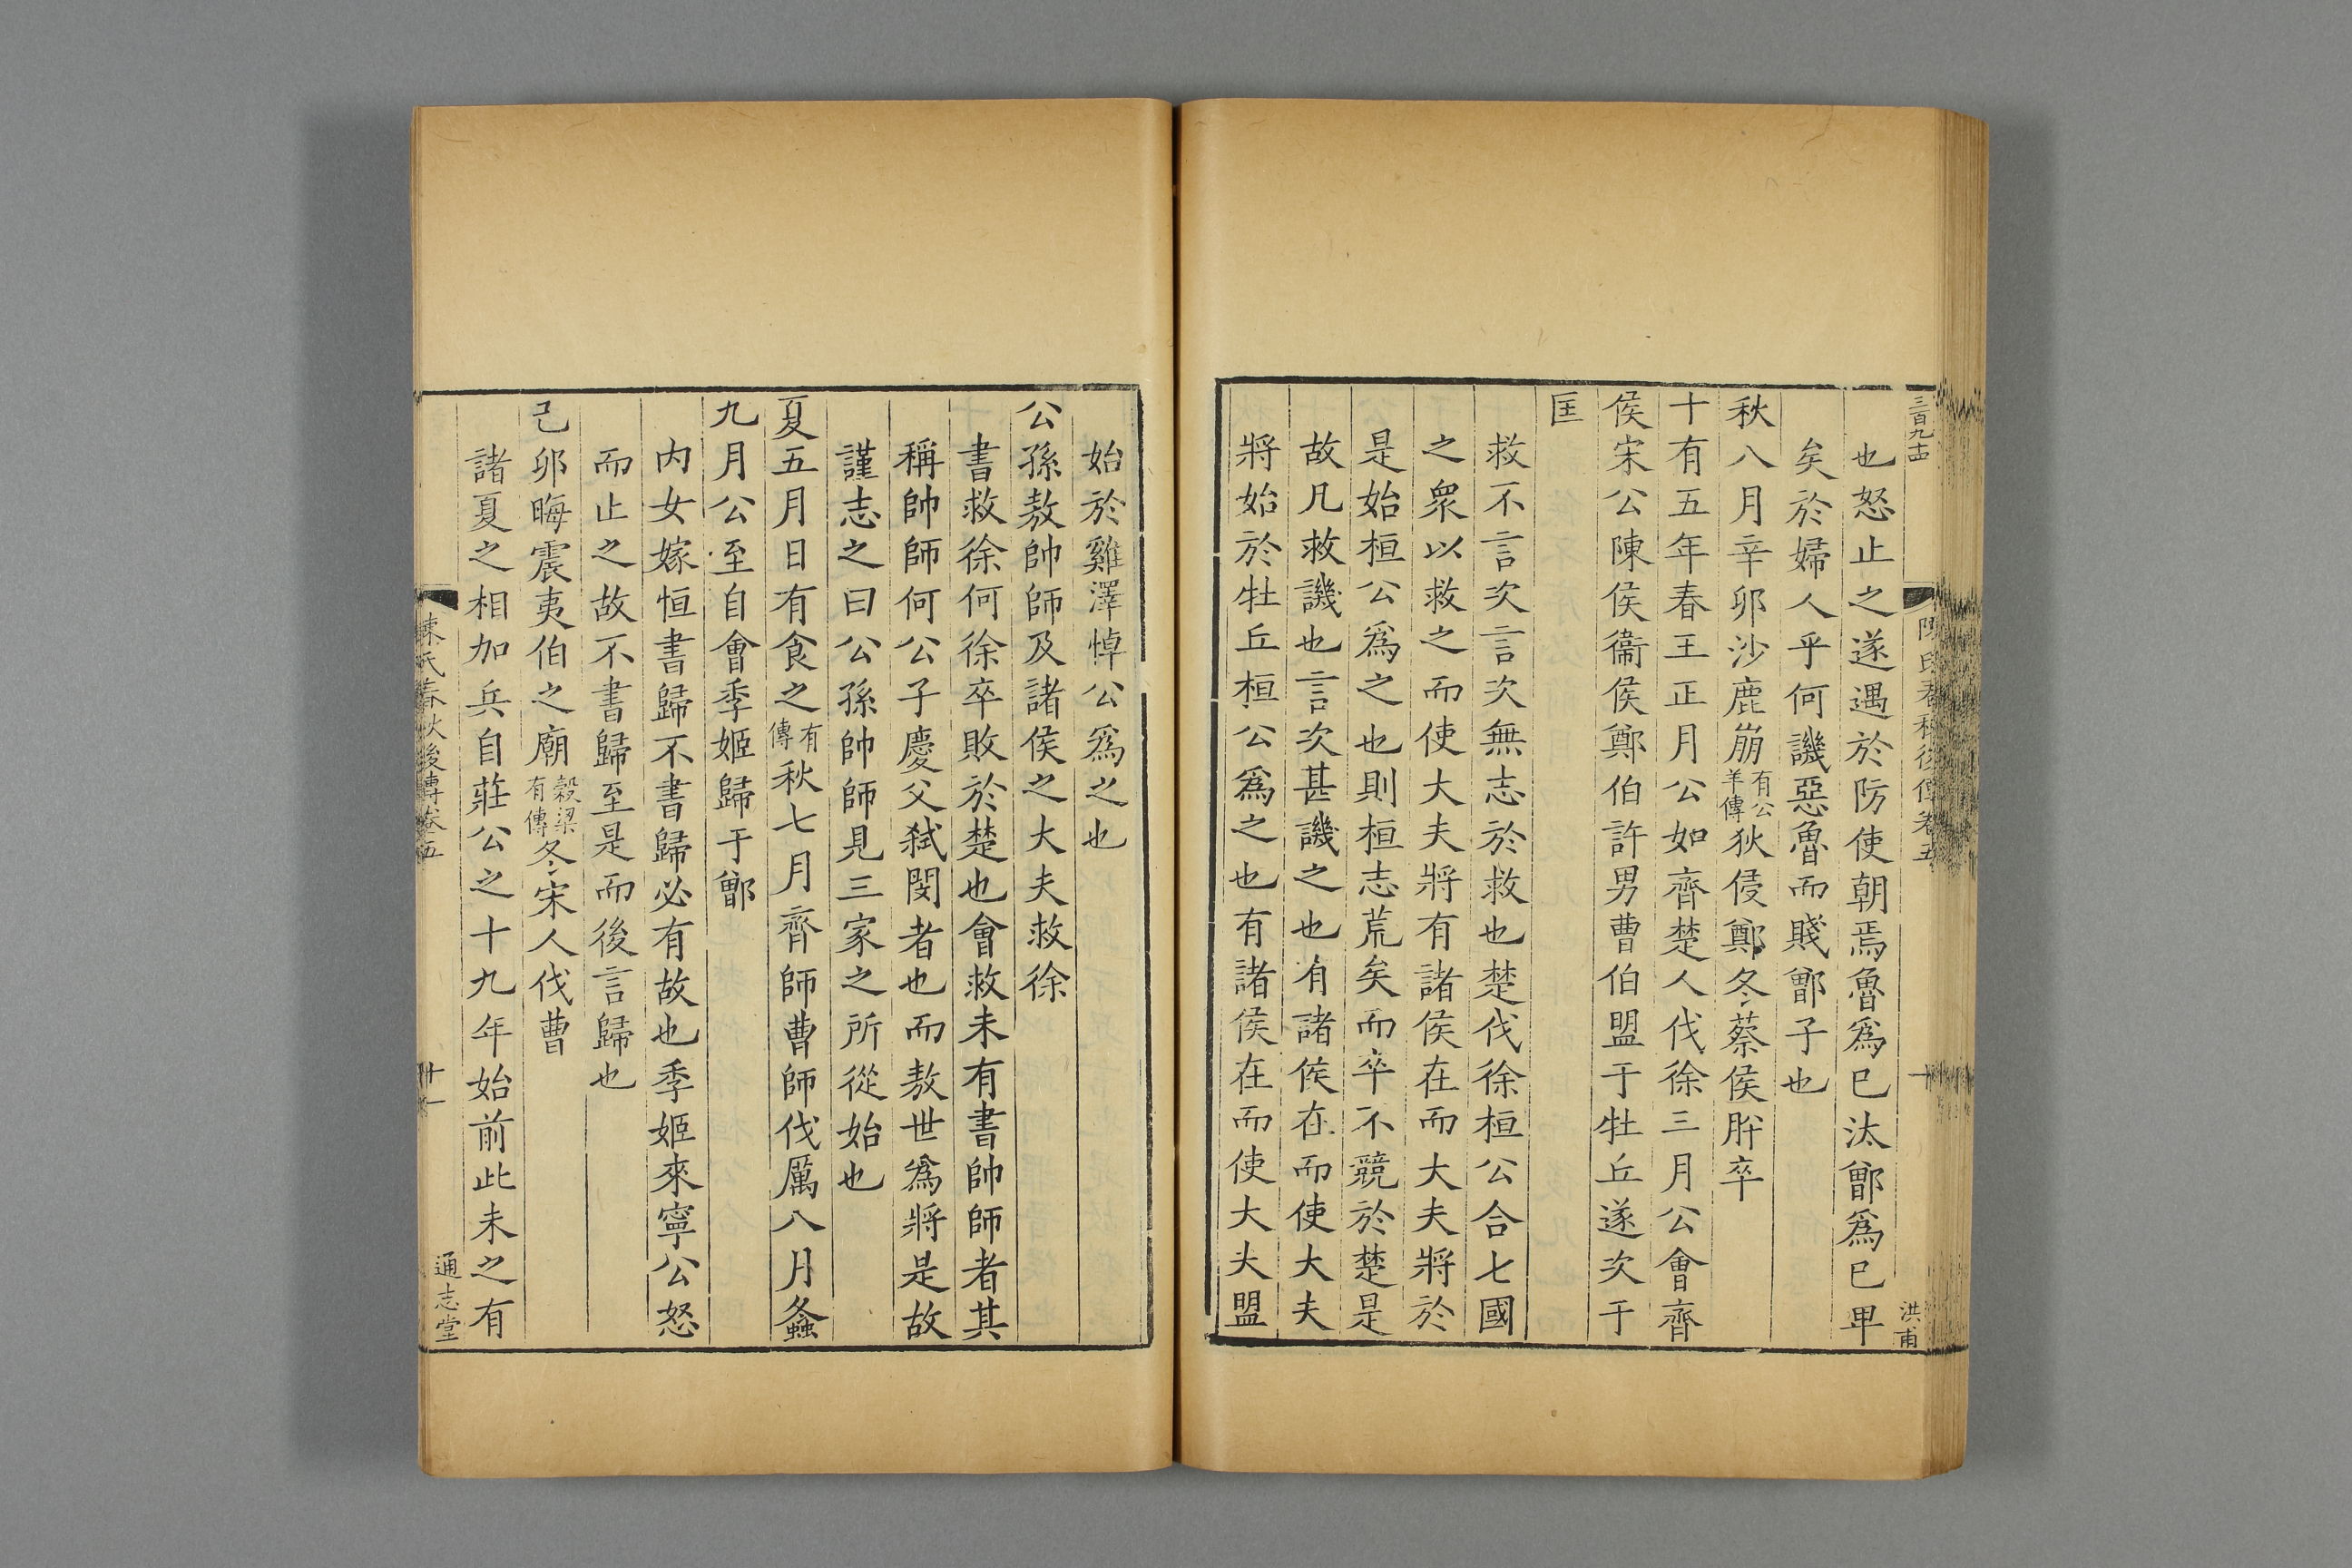 三百九十四
陳氏春秋後傳卷五
十
洪甫
也怒止之遂遇於防使朝焉魯爲已汰鄫爲已卑
矣於婦人乎何譏惡魯而賤鄫子也
秋八月辛卯沙鹿崩有公羊傳狄侵鄭冬蔡侯肸卒
十有五年春王正月公如齊楚人伐徐三月公會齊
侯宋公陳侯衞侯鄭伯許男曹伯盟于牡丘遂次于
匡
救不言次言次無志於救也楚伐徐桓公合七國
之衆以救之而使大夫將有諸侯在而大夫將於
是始桓公爲之也則桓志荒矣而卒不競於楚是
故凡救譏也言次甚譏之也有諸侯在而使大夫
將始於牡丘桓公爲之也有諸侯在而使大夫盟
始於雞澤悼公爲之也
公孫敖帥師及諸侯之大夫救徐
書救徐何徐卒敗於楚也會救未有書帥師者其
稱帥師何公子慶父弑閔者也而敖世爲將是故
謹志之曰公孫帥師見三家之所從始也
夏五月日有食之有傳秋七月齊師曹師伐厲八月螽
九月公至自會季姬歸于鄫
内女嫁恒書歸不書歸必有故也季姬來寧公怒
而止之故不書歸至是而後言歸也
己卯晦震夷伯之廟穀梁有傳冬宋人伐曹
諸夏之相加兵自莊公之十九年始前此未之有
陳氏春秋後傳卷五
十一
通志堂